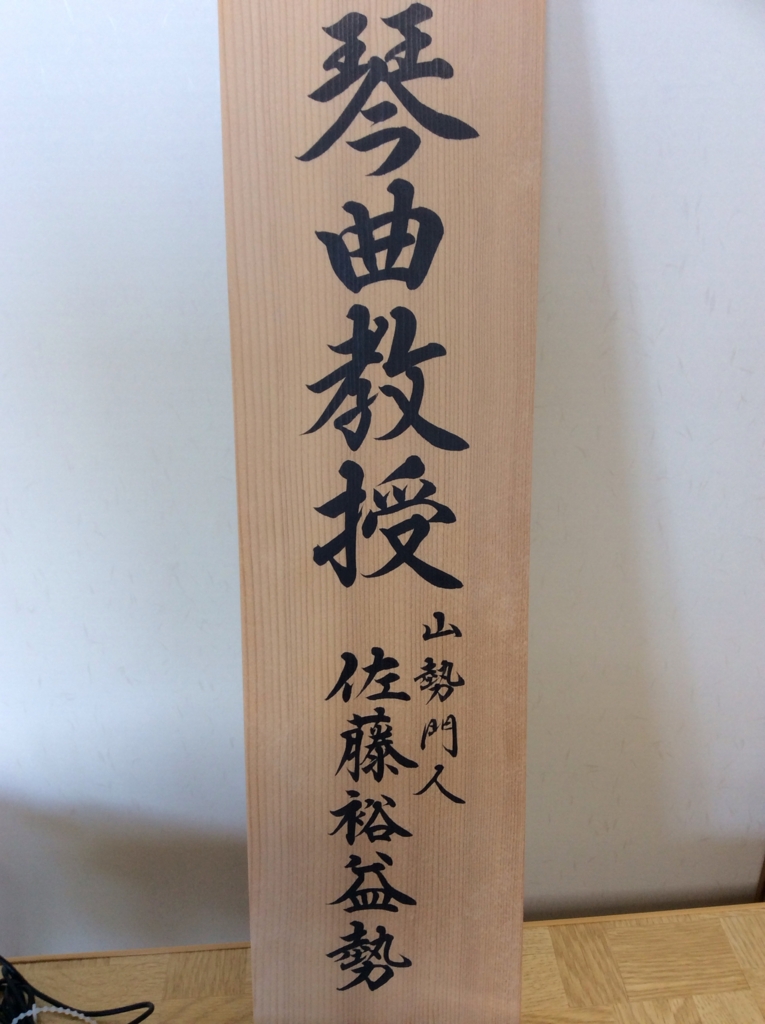 琴曲教授
山勢門人
佐藤裕益勢